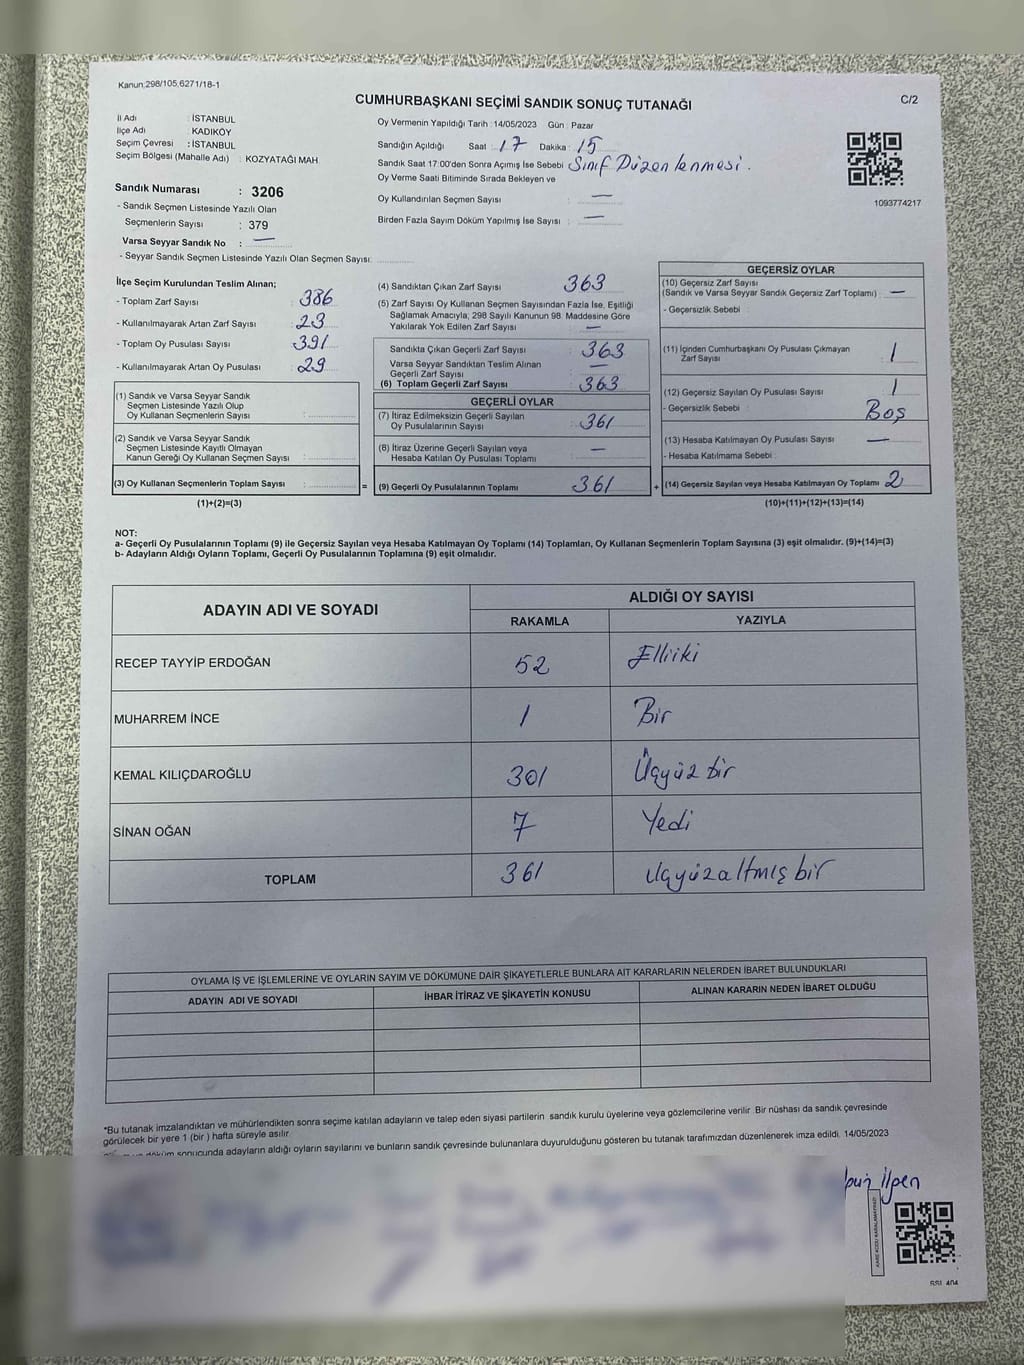 Kanun:298/105,6271/18-1
CUMHURBAŞKANI SEÇİMİ SANDIK SONUÇ TUTANAĞI
C/2
İl Adı : İSTANBUL
İlçe Adı : KADIKÖY
Seçim Çevresi : İSTANBUL
Seçim Bölgesi (Mahalle Adı) : KOZYATAĞI MAH.
Oy Vermenin Yapıldığı Tarih : 14/05/2023 Gün : Pazar
Sandığın Açıldığı Saat : 17 Dakika : 15
Sandık Saat 17:00'den Sonra Açımış İse Sebebi : Sınıf Düzenlenmesi.
Oy Verme Saati Bitiminde Sırada Bekleyen ve
Oy Kullandırılan Seçmen Sayısı : —
Birden Fazla Sayım Döküm Yapılmış İse Sayısı : —
1093774217
Sandık Numarası : 3206
- Sandık Seçmen Listesinde Yazılı Olan
Seçmenlerin Sayısı : 379
Varsa Seyyar Sandık No : —
- Seyyar Sandık Seçmen Listesinde Yazılı Olan Seçmen Sayısı:
İlçe Seçim Kurulundan Teslim Alınan;
- Toplam Zarf Sayısı : 386
- Kullanılmayarak Artan Zarf Sayısı : 23
- Toplam Oy Pusulası Sayısı : 391
- Kullanılmayarak Artan Oy Pusulası : 29
(1) Sandık ve Varsa Seyyar Sandık
Seçmen Listesinde Yazılı Olup
Oy Kullanan Seçmenlerin Sayısı :
(2) Sandık ve Varsa Seyyar Sandık
Seçmen Listesinde Kayıtlı Olmayan
Kanun Gereği Oy Kullanan Seçmen Sayısı :
(3) Oy Kullanan Seçmenlerin Toplam Sayısı :
(1)+(2)=(3)
(4) Sandıktan Çıkan Zarf Sayısı : 363
(5) Zarf Sayısı Oy Kullanan Seçmen Sayısından Fazla İse, Eşitliği
Sağlamak Amacıyla; 298 Sayılı Kanunun 98. Maddesine Göre
Yakılarak Yok Edilen Zarf Sayısı : —
Sandıkta Çıkan Geçerli Zarf Sayısı : 363
Varsa Seyyar Sandıktan Teslim Alınan
Geçerli Zarf Sayısı : —
(6) Toplam Geçerli Zarf Sayısı : 363
GEÇERLİ OYLAR
(7) İtiraz Edilmeksizin Geçerli Sayılan
Oy Pusulalarının Sayısı : 361
(8) İtiraz Üzerine Geçerli Sayılan veya
Hesaba Katılan Oy Pusulası Toplamı : —
= (9) Geçerli Oy Pusulalarının Toplamı : 361
GEÇERSİZ OYLAR
(10) Geçersiz Zarf Sayısı
(Sandık ve Varsa Seyyar Sandık Geçersiz Zarf Toplamı) : —
- Geçersizlik Sebebi :
(11) İçinden Cumhurbaşkanı Oy Pusulası Çıkmayan
Zarf Sayısı : 1
(12) Geçersiz Sayılan Oy Pusulası Sayısı : 1
- Geçersizlik Sebebi : Boş
(13) Hesaba Katılmayan Oy Pusulası Sayısı : —
- Hesaba Katılmama Sebebi :
+ (14) Geçersiz Sayılan veya Hesaba Katılmayan Oy Toplamı : 2
(10)+(11)+(12)+(13)=(14)
NOT:
a- Geçerli Oy Pusulalarının Toplamı (9) ile Geçersiz Sayılan veya Hesaba Katılmayan Oy Toplamı (14) Toplamları, Oy Kullanan Seçmenlerin Toplam Sayısına (3) eşit olmalıdır. (9)+(14)=(3)
b- Adayların Aldığı Oyların Toplamı, Geçerli Oy Pusulalarının Toplamına (9) eşit olmalıdır.
ADAYIN ADI VE SOYADI
ALDIĞI OY SAYISI
RAKAMLA YAZIYLA
RECEP TAYYİP ERDOĞAN 52 Elliiki
MUHARREM İNCE 1 Bir
KEMAL KILIÇDAROĞLU 301 Üçyüz bir
SİNAN OĞAN 7 Yedi
TOPLAM 361 Üçyüzaltmış bir
OYLAMA İŞ VE İŞLEMLERİNE VE OYLARIN SAYIM VE DÖKÜMÜNE DAİR ŞİKAYETLERLE BUNLARA AİT KARARLARIN NELERDEN İBARET BULUNDUKLARI
ADAYIN ADI VE SOYADI İHBAR İTİRAZ VE ŞİKAYETİN KONUSU ALINAN KARARIN NEDEN İBARET OLDUĞU
*Bu tutanak imzalandıktan ve mühürlendikten sonra seçime katılan adayların ve talep eden siyasi partilerin sandık kurulu üyelerine veya gözlemcilerine verilir. Bir nüshası da sandık çevresinde
görülecek bir yere 1 (bir ) hafta süreyle asılır.
döküm sonucunda adayların aldığı oyların sayılarını ve bunların sandık çevresinde bulunanlara duyurulduğunu gösteren bu tutanak tarafımızdan düzenlenerek imza edildi. 14/05/2023